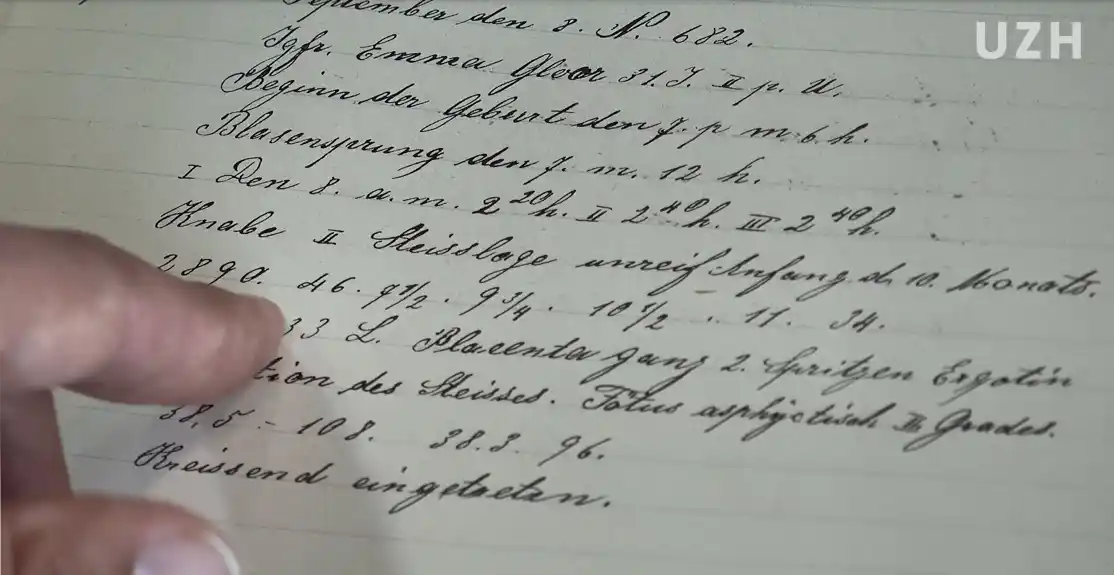 UZH
September den 8. N. 682.
Igfr. Emma Gloor 31. J. II p. U.
Beginn der Geburt den 7. p m. 6 h.
Blasensprung den 7. m. 12 h.
I Den 8. a. m. 2 20 h. II 2 40 h. III 2 40 h.
Knabe II Steisslage unreif Anfang d. 10. Monats.
2890. 46. 9 3/4. 10 1/2. 11. 34.
33 L. Placenta ganz 2. Spritzen Ergotin
des Steisses. Fötus asphyctisch II. Grades.
38,5 - 108. 38.3. 96.
Kreissend eingetreten.